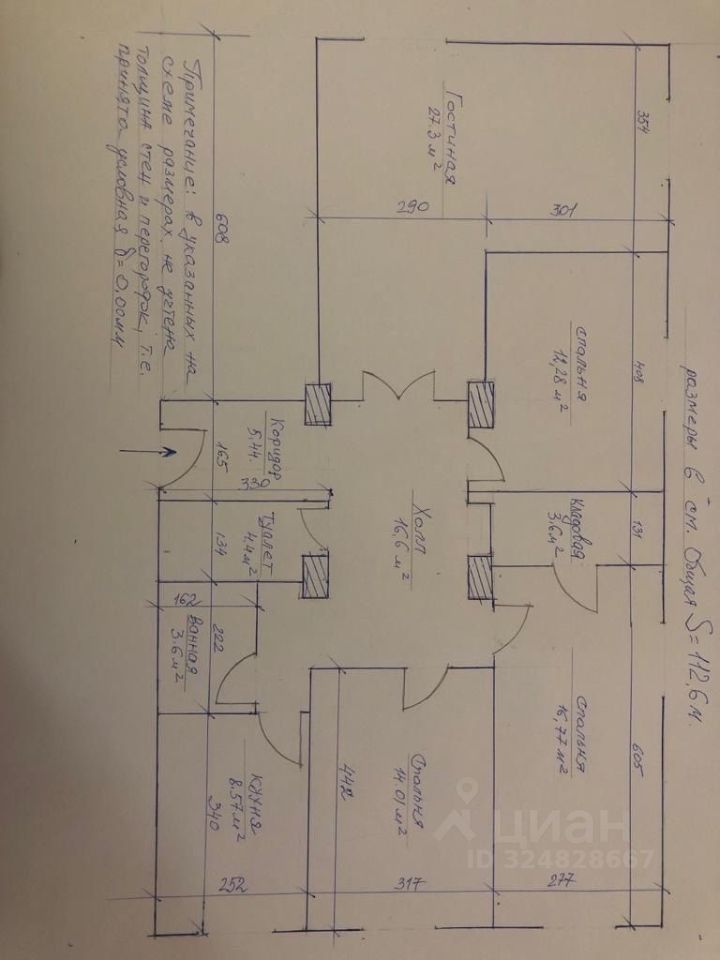 размеры в см. Общая S=112,6м.
354
408
131
605
Гостиная
27.3 м²
290
301
спальня
12,28 м²
кладовая
3,6м²
Спальня
16,77 м²
Холл
16,6 м²
Спальня
14.01 м²
442
Коридор
5,44.
330
Туалет
4,4 м²
162
Ванная
3.6 м²
Кухня
8.57 м²
608
165
134
222
340
252
317
277
Примечание: в указанных на
схеме размерах не учтена
толщина стен и перегородок, т.е.
принята условная δ=0,00мм
циан
ID 324828667